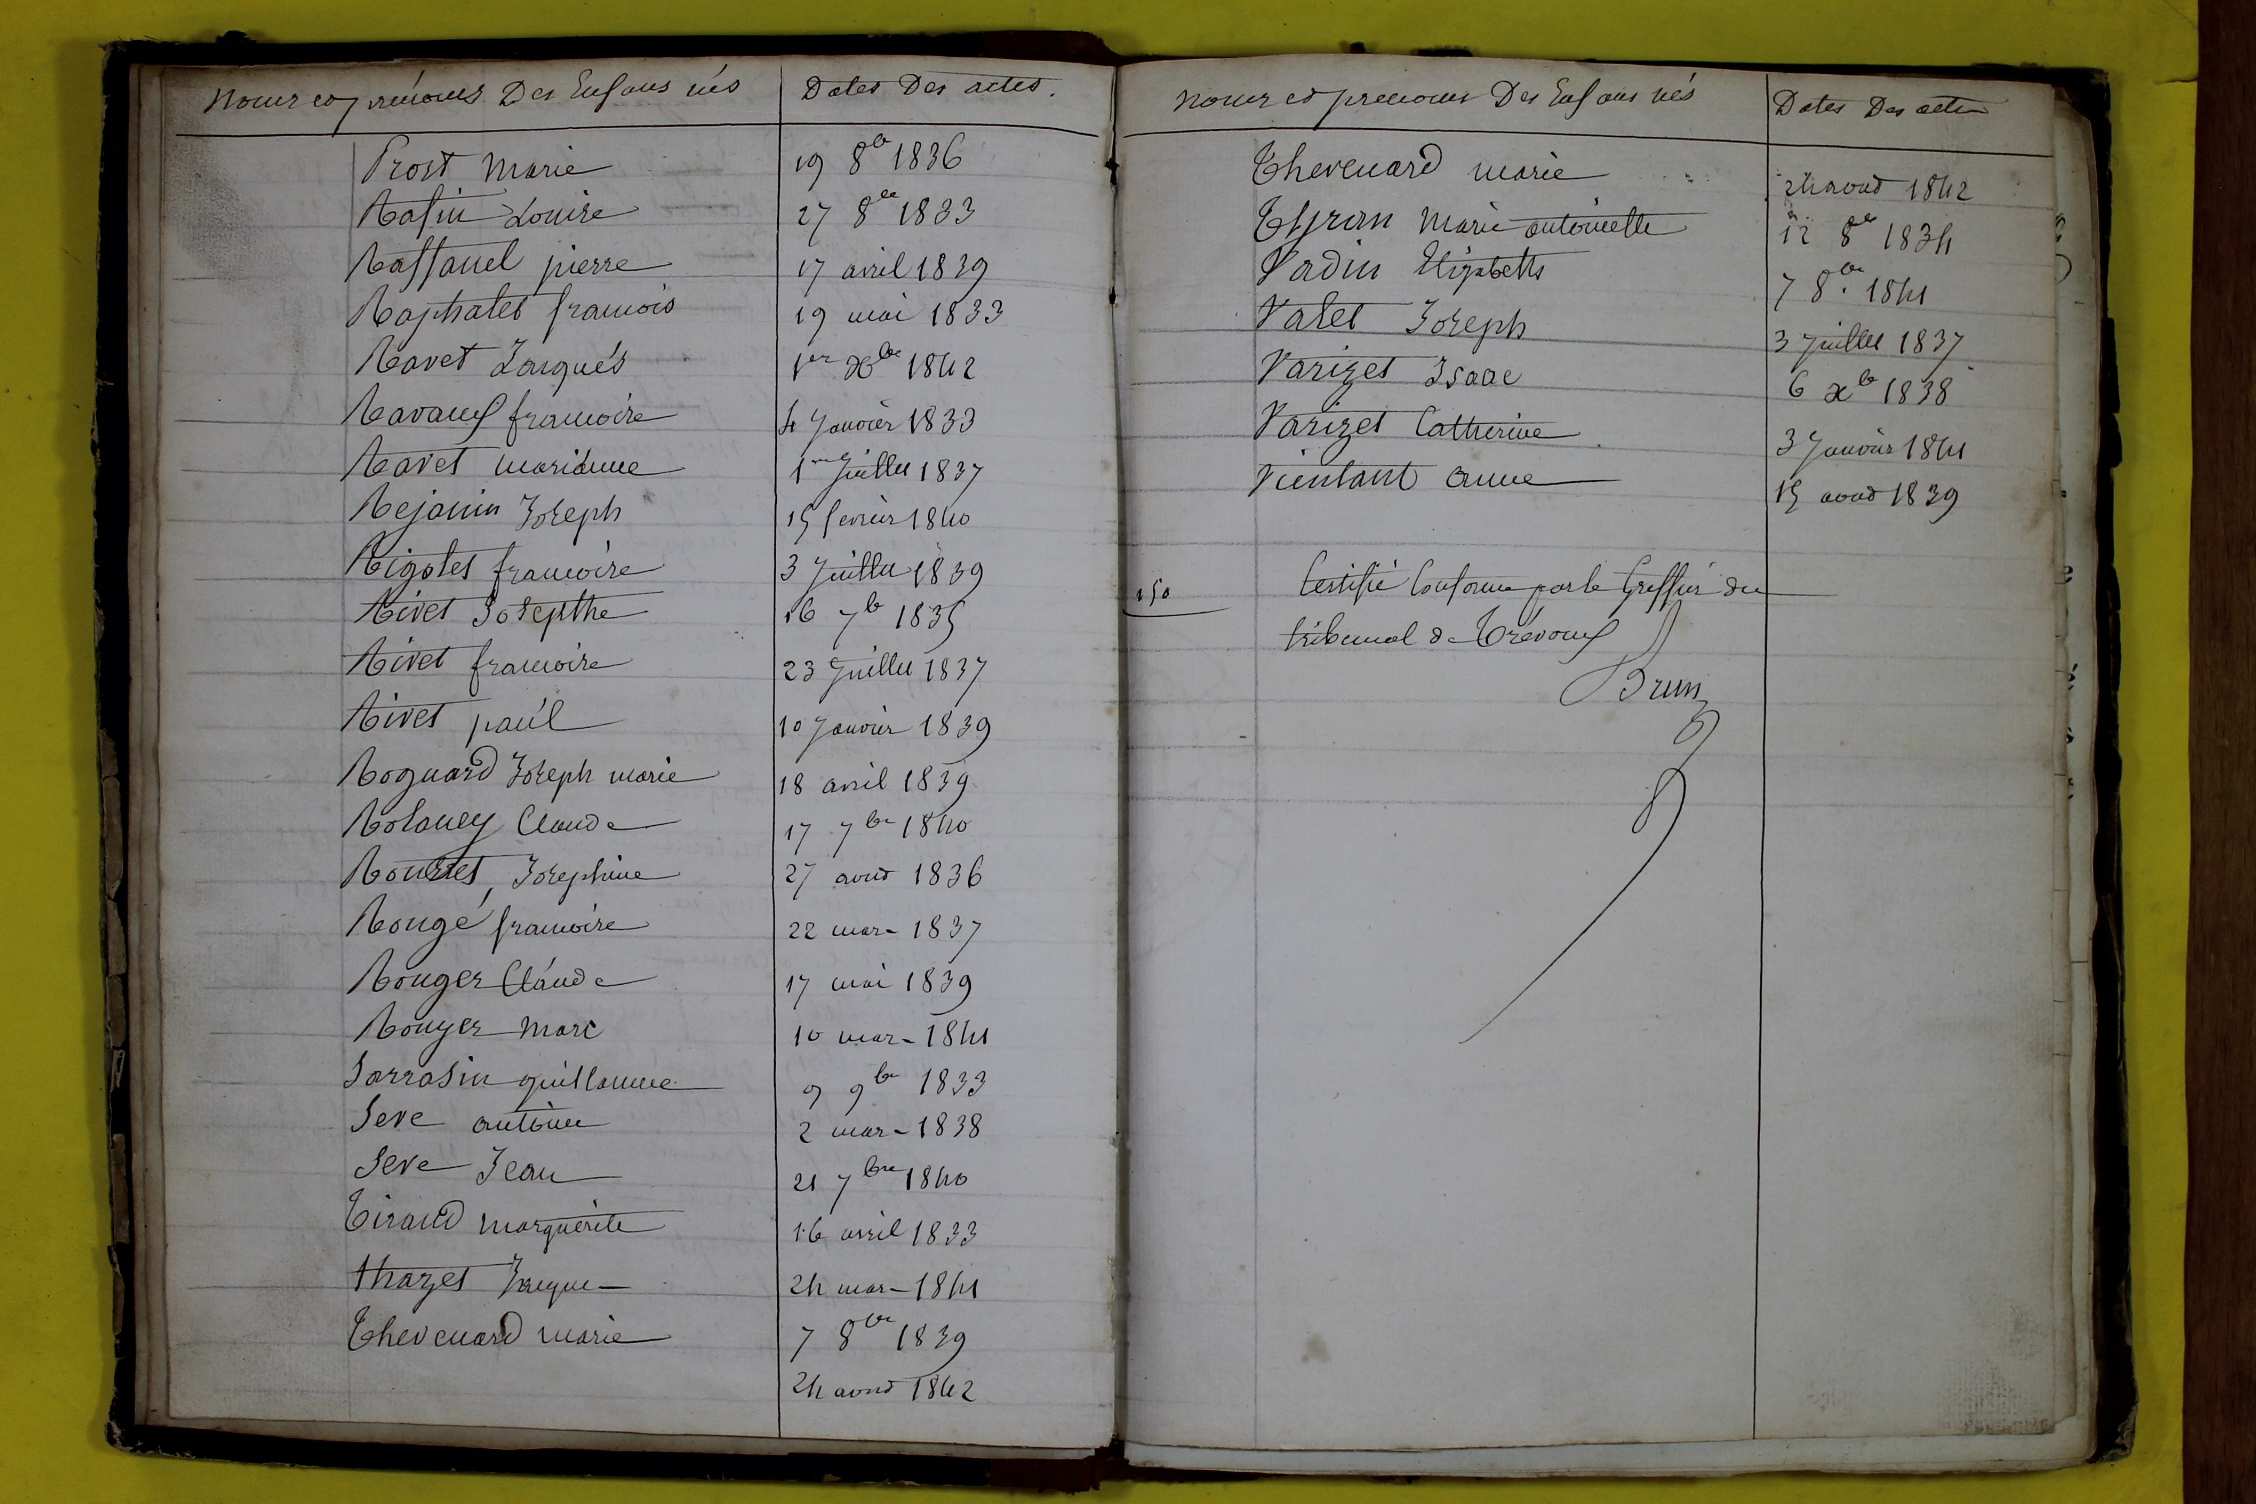 Noms et prénoms Des Enfans nés Dates Des actes.
Prost Marie 19 8bre 1836
Rafin Louise 27 8bre 1833
Raffanel pierre 17 avril 1839
Raphalet francois 19 mai 1833
Ravet Jacques 1er Xbre 1842
Ravaux francoise 4 Janvier 1833
Ravet marianne 1er Juillet 1837
Rejanin Joseph 15 fevrier 1840
Rigolet francoise 3 Juillet 1839
Rivet Josepthe 16 7bre 1835
Rivet francoise 23 Juillet 1837
Rivet paul 10 Janvier 1839
Rognard Joseph marie 18 avril 1839
Rolancy Claude 17 7bre 1840
Josephine 27 aout 1836
Rougé francoise 22 mars 1837
Rouger Claude 17 mai 1839
Rouyer Marc 10 mars 1841
Sarrasin guillaume 9 9bre 1833
Seve antoine 2 mars 1838
Seve Jean 21 7bre 1840
Tiraud marguerite 16 avril 1833
thazet Jacques 24 mars 1841
Thevenard marie 7 8bre 1839
24 aout 1842
Noms et prenoms Des Enfans nés Dates Des actes
Thevenard marie 24 aout 1842
Marie antoinette 12 8bre 1834
Vadin Elizabeth 7 8bre 1841
Valet Joseph 3 Juillet 1837
Varizet Isaac 6 Xbre 1838
Varizet Catherine 3 Janvier 1841
anne 15 aout 1839
150 Certifié Conforme par le Greffier du
tribunal de Trévoux
Brun